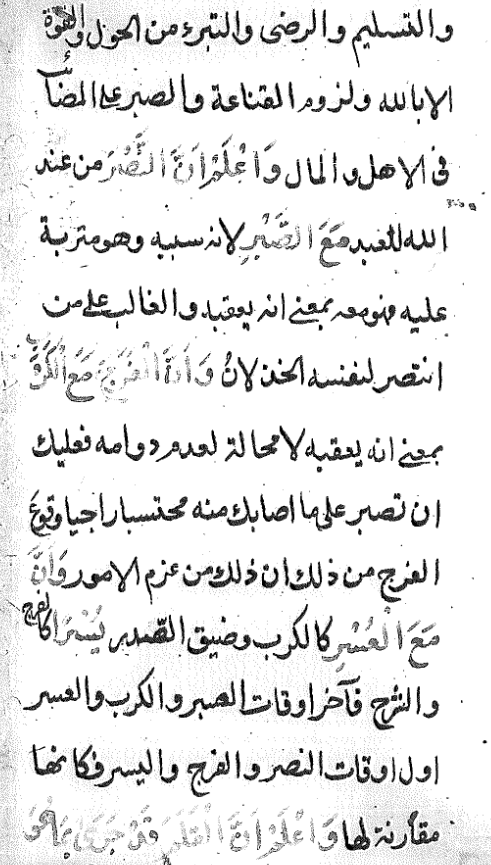 والتسليم والرضى والتبرء من الحول والقوة
الا بالله ولزوم القناعة والصبر على المصائب
فى الاهل والمال وَاعْلَمْ اَنَّ النَّصْرَ من عند
الله للعبد مَعَ الصَّبْرِ لانه سببه وهو مترتبة
عليه فهو معه بمعنى انه يعقبه والغالب على من
انتصر لنفسه الخذلانُ وَاَنَّ الْفَرَجَ مَعَ الْكَرْبِ
بمعنى انه يعقبه لا محالة لعدم دوامه فعليك
ان تصبر على ما اصابك منه محتسبا راجيا وقوع
الفرج من ذلك ان ذلك من عزم الامور وَاَنَّ
مَعَ الْعُسْرِ كالكرب وضيق الصدر يُسْرًا كالفرج
والشرح فآخر اوقات الصبر والكرب والعسر
اول اوقات النصر والفرج واليسر فكانها
مقارنة لها وَاعْلَمْ اَنَّ الْقَلَمَ قَدْ جَرَى بِمَا هُوَ